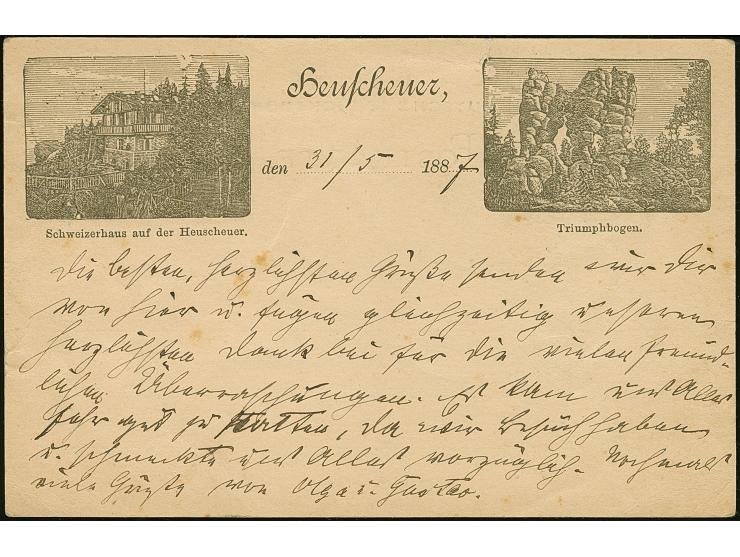 Heuscheuer,
den 31/5 1887
Schweizerhaus auf der Heuscheuer.
Triumphbogen.
Die besten, herzlichsten Grüße senden wir Dir
von hier u. fügen gleichzeitig unseren
herzlichsten Dank bei für die vielen freund-
lichen Überraschungen. Es kam uns Alles
sehr gut zu statten, da wir Besuch haben
u. schmeckte uns Alles vorzüglich. Nochmals
viele Grüße von Olga u. Gustav.